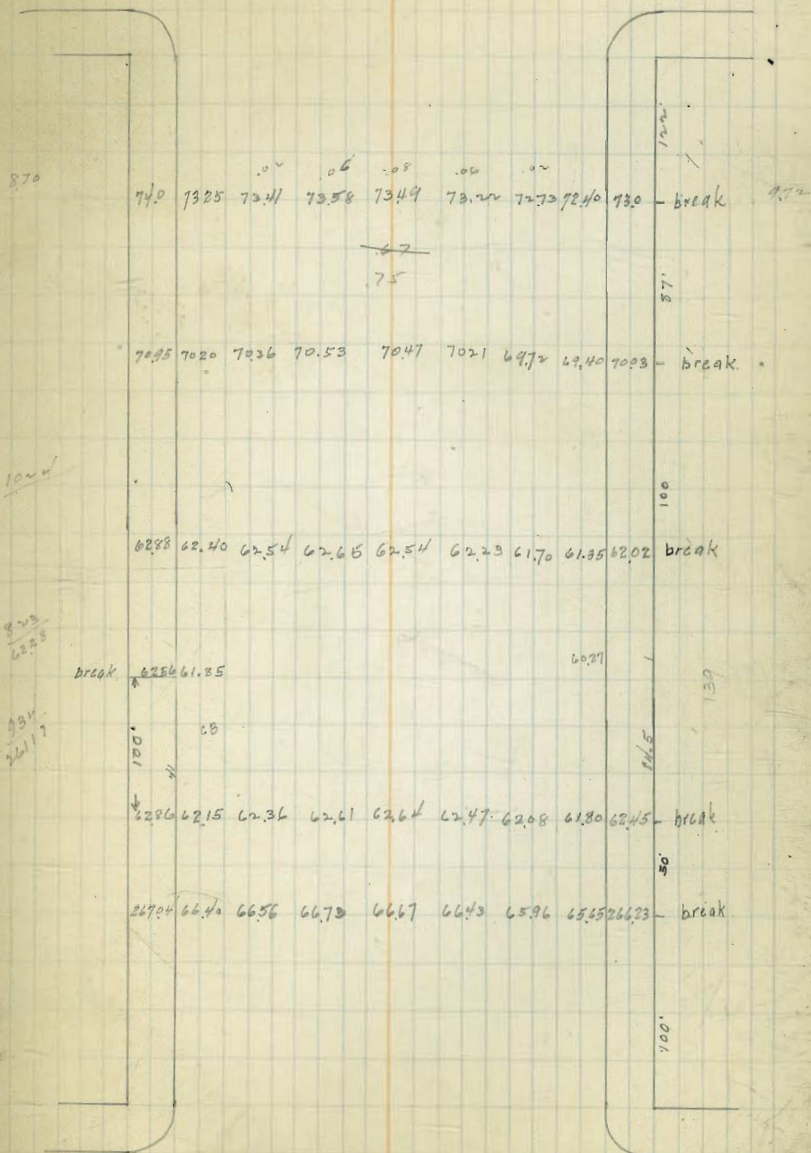 122'
.02 .06 .08 .06 .02
870 74.0 73.25 73.41 73.58 73.49 73.22 72.73 72.40 73.0 - break 9.72
.67
.75
87'
70.95 70.20 70.36 70.53 70.47 70.21 69.72 69.40 70.03 - break.
100
62.88 62.40 62.54 62.65 62.54 62.23 61.70 61.35 62.02 break
8.23
62.28
break 62.56 61.85 60.27
139
100' 84.5
62.86 62.15 62.36 62.61 62.64 62.47 62.08 61.80 62.45 - break
50'
267.04 66.40 66.56 66.73 66.67 66.43 65.96 65.65 266.23 - break
100'